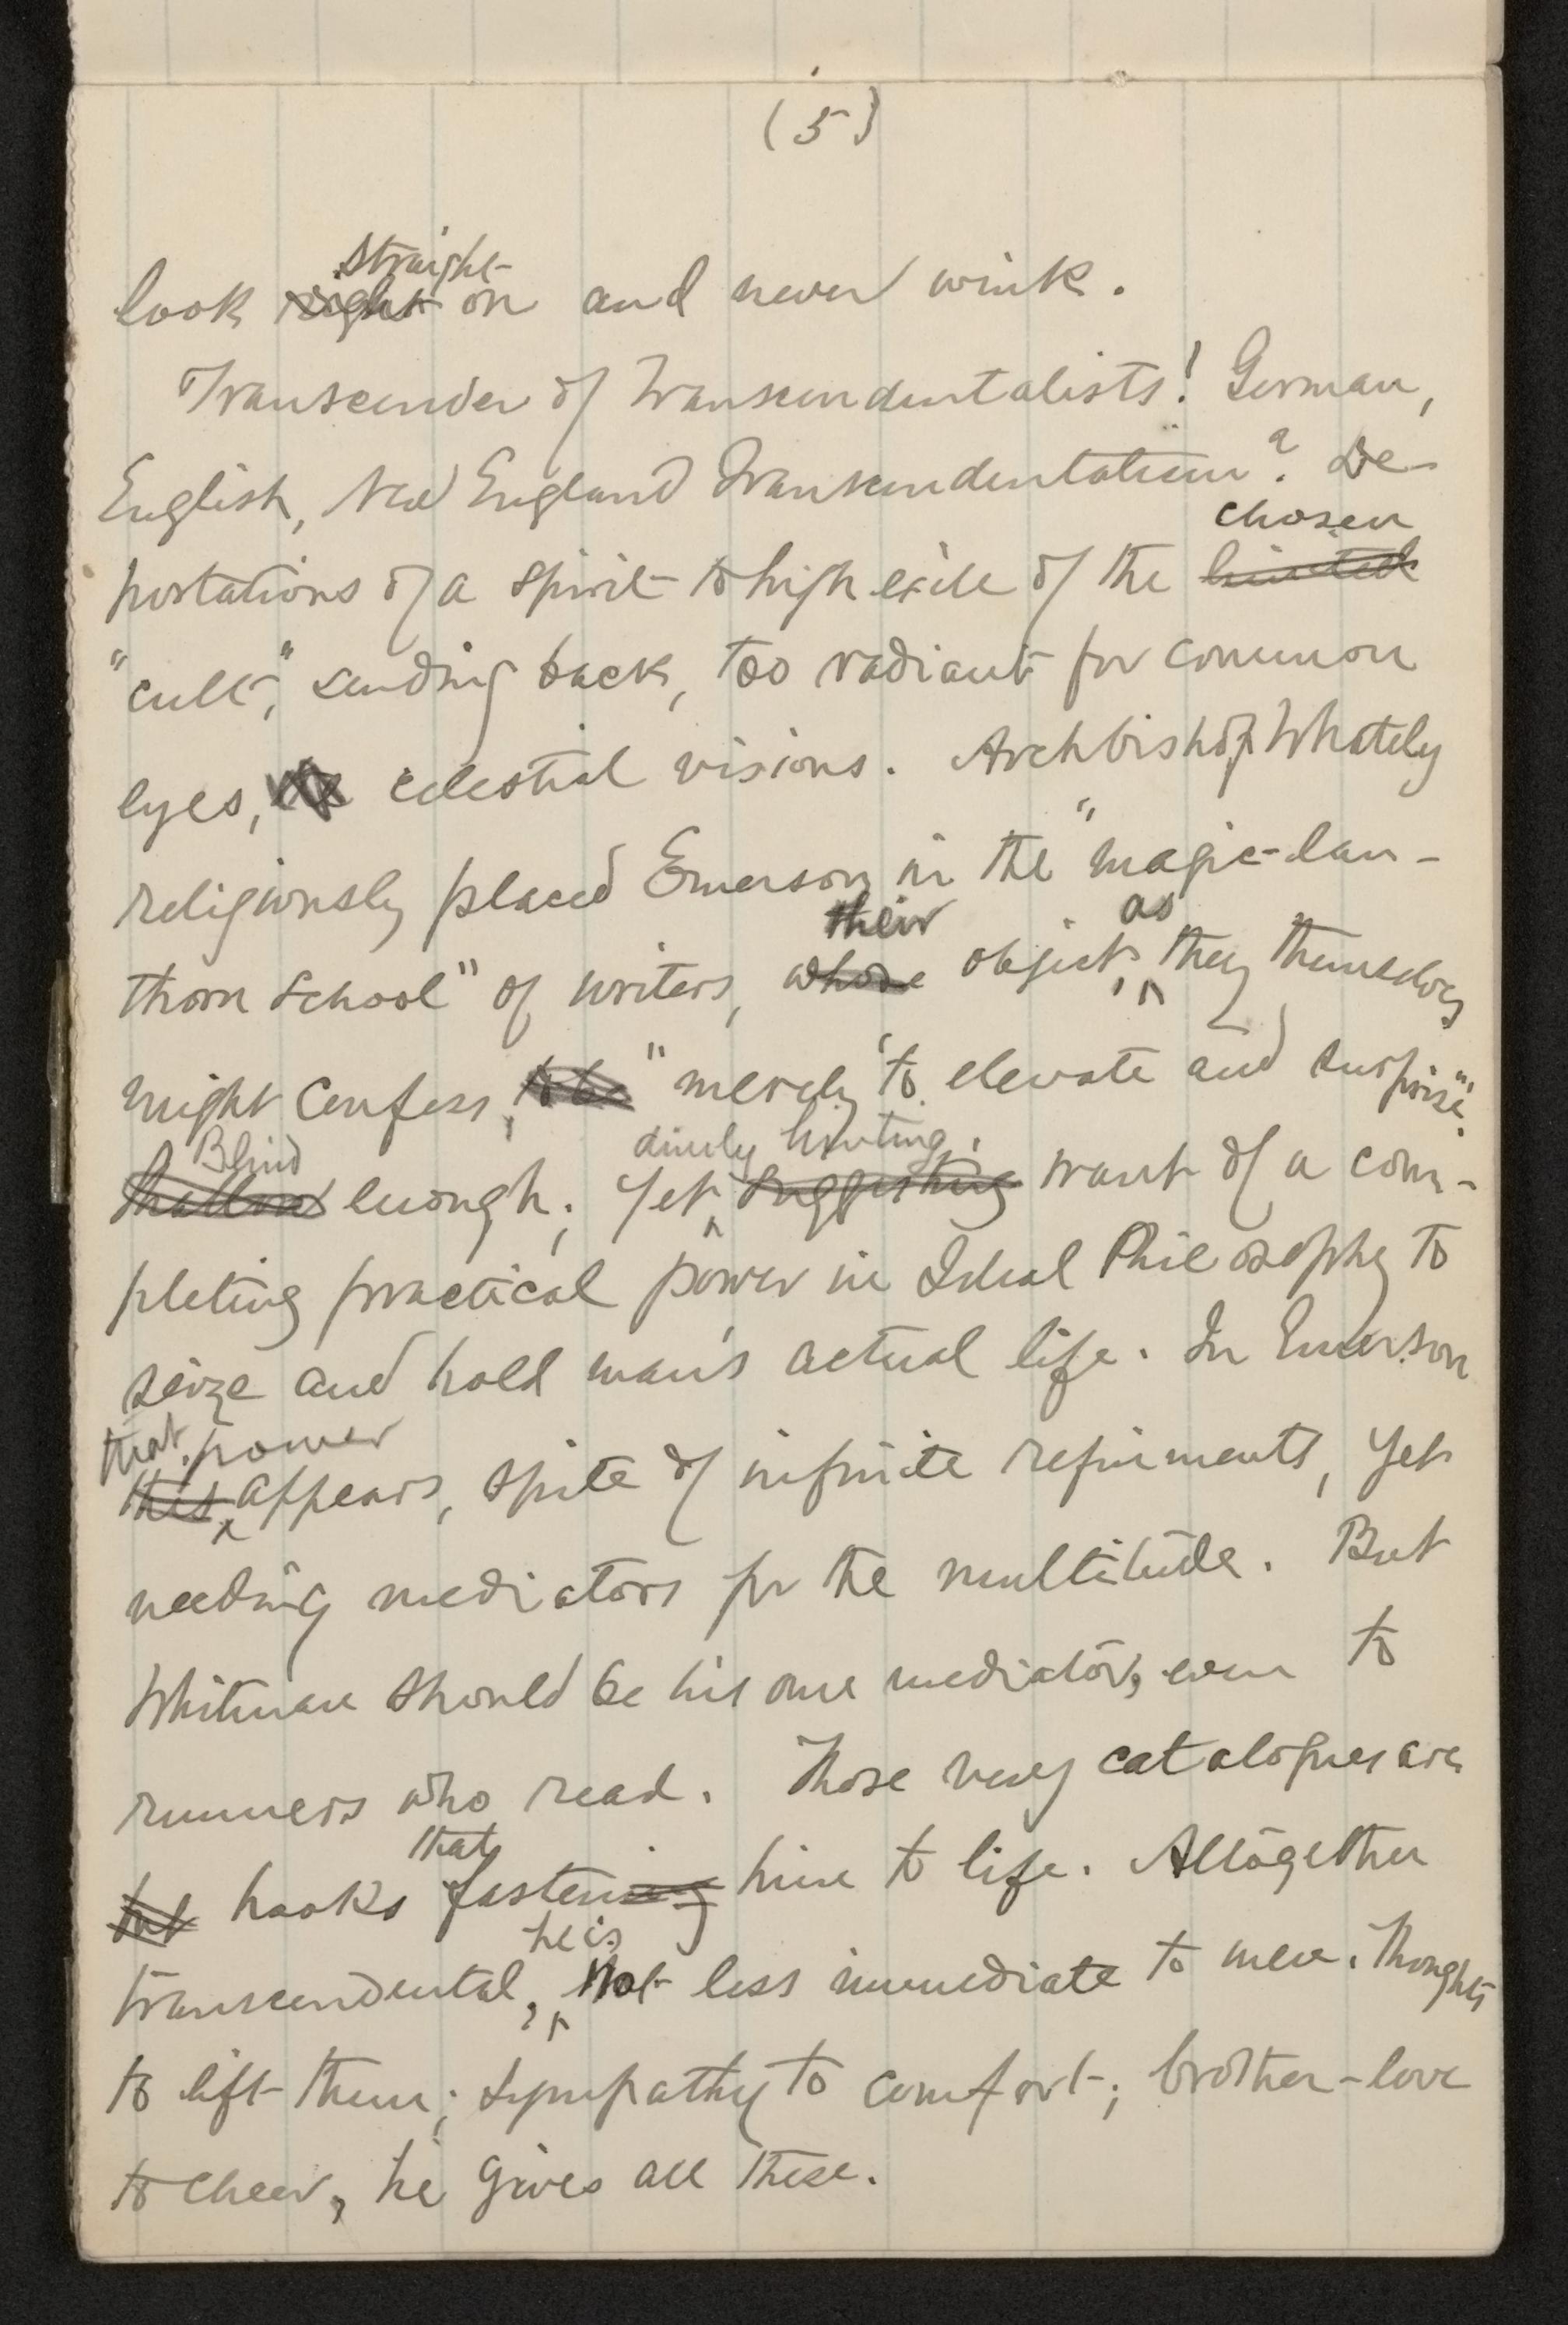 (5)
straight
look right on and never wink.
Transcender of Transcendentalists! German,
English, New England Transcendentalism? De-
chosen
portations of a spirit to high exile of the limited
"cult," sending back, too radiant for common
eyes, celestial visions. Archbishop Whately
religiously placed Emerson in the "magic-lan-
their as
thorn school" of writers, whose object, they themselves
might confess, to be "merely to elevate and surprise".
Blind dimly hinting,
Shallow enough; yet, suggesting want of a com-
pleting practical power in Ideal Philosophy to
seize and hold man's actual life. In Emerson
that power
this appears, spite of infinite refinements, yet
needing mediators for the multitude. But
Whitman should be his own mediator, even to
runners who read. Those very catalogues are
that
but hooks fastening him to life. Altogether
he is
transcendental, not less immediate to men. Thoughts
to lift them; sympathy to comfort; brother-love
to cheer, he gives all these.